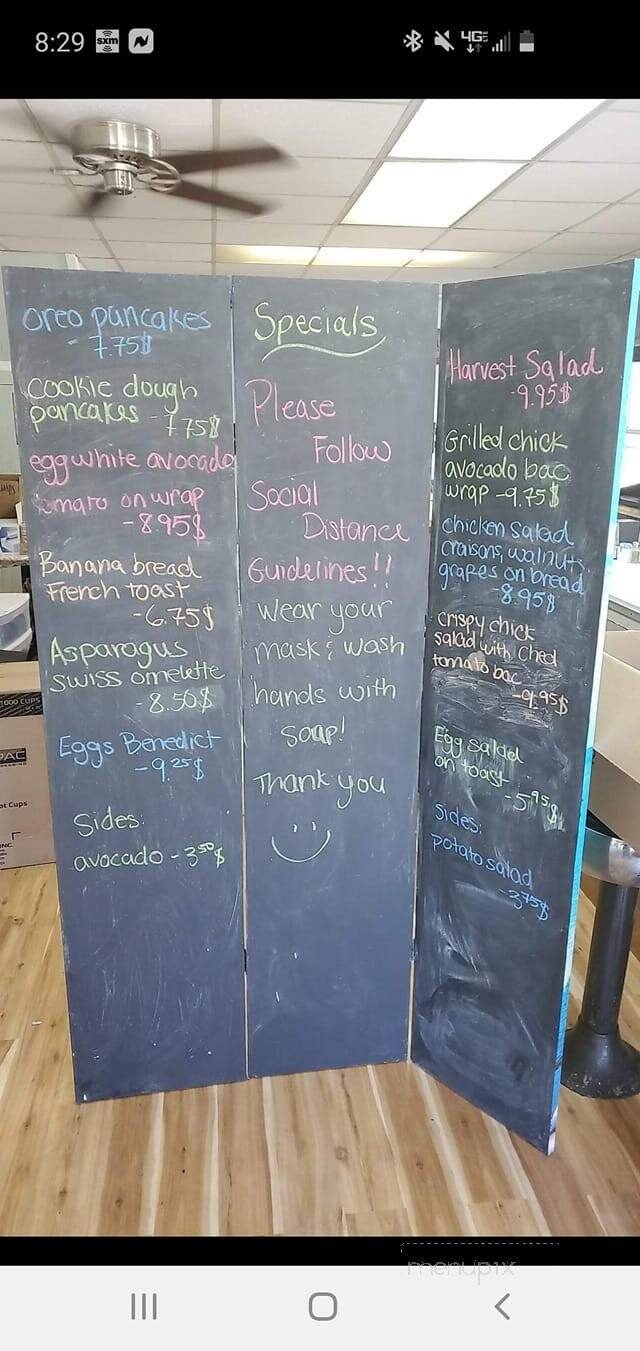 8:29
sxm
4GE
oreo pancakes
7.75$
cookie dough
pancakes - 7.75$
egg white avocado
tomato on wrap
- 8.95$
Banana bread
French toast
- 6.75$
Asparagus
swiss omelette
- 8.50$
Eggs Benedict
- 9.25$
Sides:
avocado - 3.50$
Specials
Please
Follow
Social
Distance
Guidelines!!
Wear your
mask & wash
hands with
soap!
Thank you
Harvest Salad
- 9.95$
Grilled chick
avocado bac
wrap - 9.75$
chicken salad
craisons, walnuts,
grapes on bread
- 8.95$
crispy chick
salad with ched
tomato bac
- 9.95$
Egg salad
on toast - 5.95$
Sides:
potato salad
- 3.75$
1000 CUPS
PAC
ot Cups
INC.
menupix